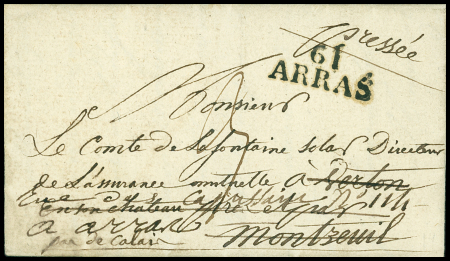 pressée
61
ARRAS
Monsieur
Le Comte de Lafontaine Solar Directeur
de L'assurance mutuelle à Verton
en son château
à arras Montreuil
pas de Calais